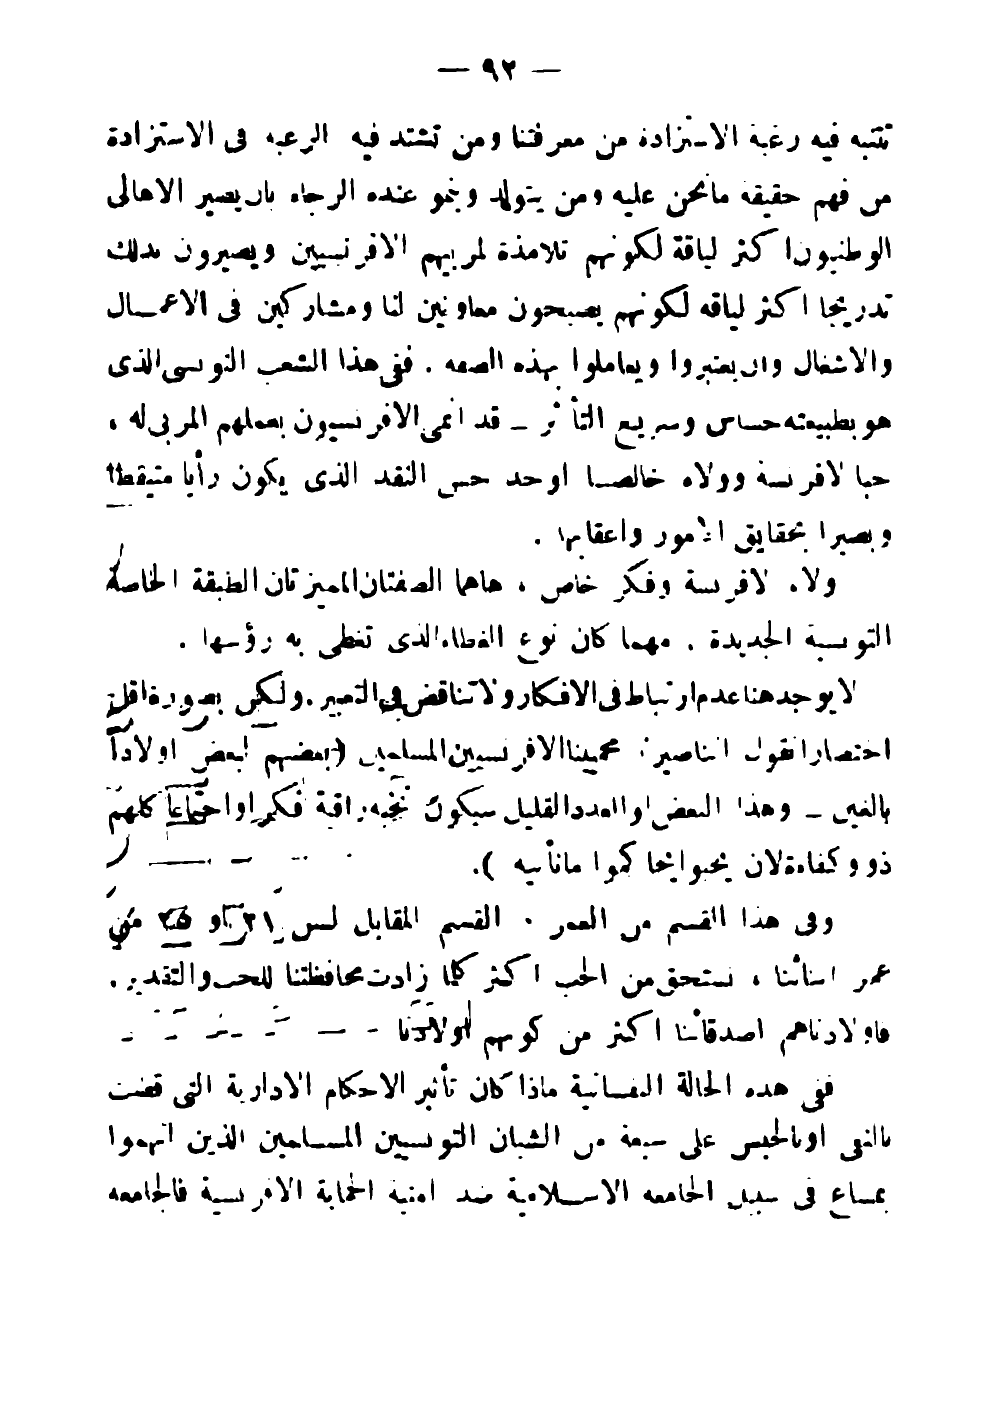 — ٩٢ —
تنتبه فيه رغبة الاستزاده من معرفتنا ومن تشتد فيه الرغبه فى الاستزادة
من فهم حقيقه مانحن عليه ومن يتولد وينمو عنده الرجاء بان يصير الاهالى
الوطنيون اكثر لياقة لكونهم تلامذة لمربيهم الافرنسيين ويصيرون بذلك
تدريجا اكثر لياقه لكونهم يصبحون معاونين لنا ومشاركين فى الاعمال
والاشغال وان يعتبروا ويعاملوا بهذه الصفه . ففى هذا الشعب التونسى الذى
هو بطبيعته حساس وسريع التأثر ـ قد انمى الافرنسيون بعملهم المربى له ،
حبا لافرنسة وولاء خالصا اوجد حس النقد الذى يكون رأيا متيقظا
وبصيرا بحقايق الامور واعقابها .
ولاء لافرنسة وفكر خاص ، هاهما الصفتان المميزتان الطبقة الخاصة
التونسية الجديدة . مهما كان نوع الغطاء الذى تغطى به رؤسها .
لايوجد هنا عدم ارتباط فى الافكار ولا تناقض فى التعبير . ولكن بصورة اقل
اختصارا نقول المناصير: محميينا الافرنسيين المسلمين (بعضهم لبعض اولادا
بالغين ـ وهذا البعض او العدد القليل سيكون نخبه راقية فكرا واجتماعا كلهم
ذوو كفاءة لان يحبوا يحاكموا مانأتيه ).
وفى هذا القسم من العمر . القسم المقابل لسن ٢١ او ٢٥ من
عمر ابنائنا ، نستحق من الحب اكثر كلما زادت محافظتنا للحب والتقدير .
فاولادنا هم اصدقائنا اكثر من كونهم اولادنا
ففى هذه الحالة النفسانية ماذا كان تأثير الاحكام الادارية التى قضت
بالنفى اوبالحبس على سبعة من الشبان التونسيين المسلمين الذين اتهموا
بمساع فى سبيل الجامعه الاسلامية ضد امنية الحماية الافرنسية فالجامعه